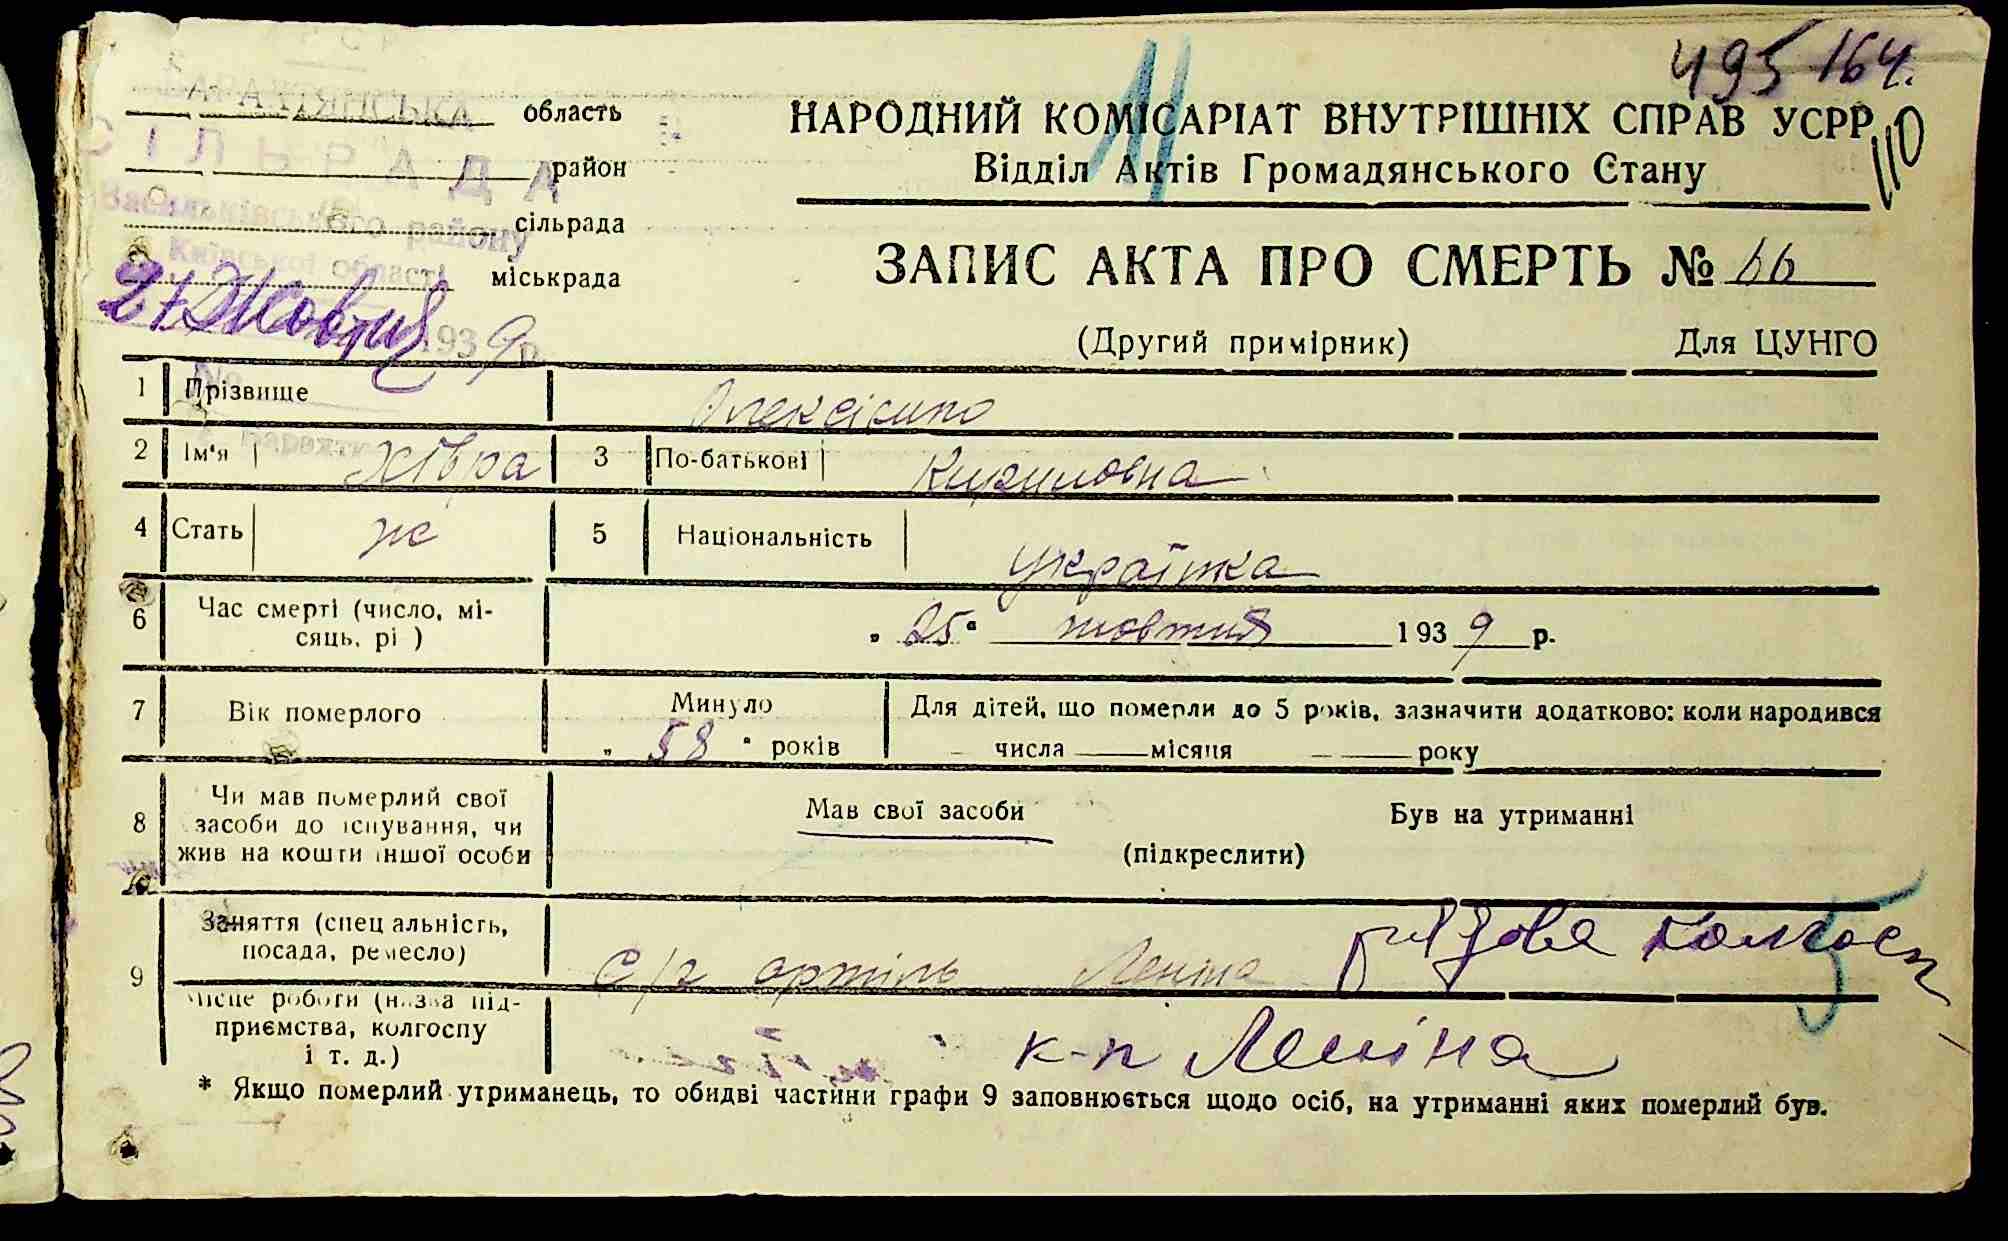 495 164.
110
БАРАХТЯНСЬКА
СІЛЬРАДА
Васильківського району
Київської області
область
район
сільрада
міськрада
27 Жовтня 1939 р.
НАРОДНИЙ КОМІСАРІАТ ВНУТРІШНІХ СПРАВ УСРР
Відділ Актів Громадянського Стану
ЗАПИС АКТА ПРО СМЕРТЬ № 66
(Другий примірник) Для ЦУНГО
1 Прізвище Олексієнко
2 Ім'я Хівра 3 По-батькові Кириловна
4 Стать ж 5 Національність Українка
6 Час смерті (число, мі-
сяць, рі ) „ 25 " жовтня 1939 р.
7 Вік померлого Минуло
„ 58 " років
Для дітей, що померли до 5 років, зазначити додатково: коли народився
— числа ——місяця — ——року
8 Чи мав померлий свої
засоби до існування, чи
жив на кошти іншої особи
Мав свої засоби Був на утриманні
(підкреслити)
9 Заняття (спец альність,
посада, ремесло)
с/г артіль Леніна рядова колгосп
Місце роботи (назва під-
приємства, колгоспу
і т. д.)
к-п Леніна
* Якщо померлий утриманець, то обидві частини графи 9 заповнюється щодо осіб, на утриманні яких померлий був.